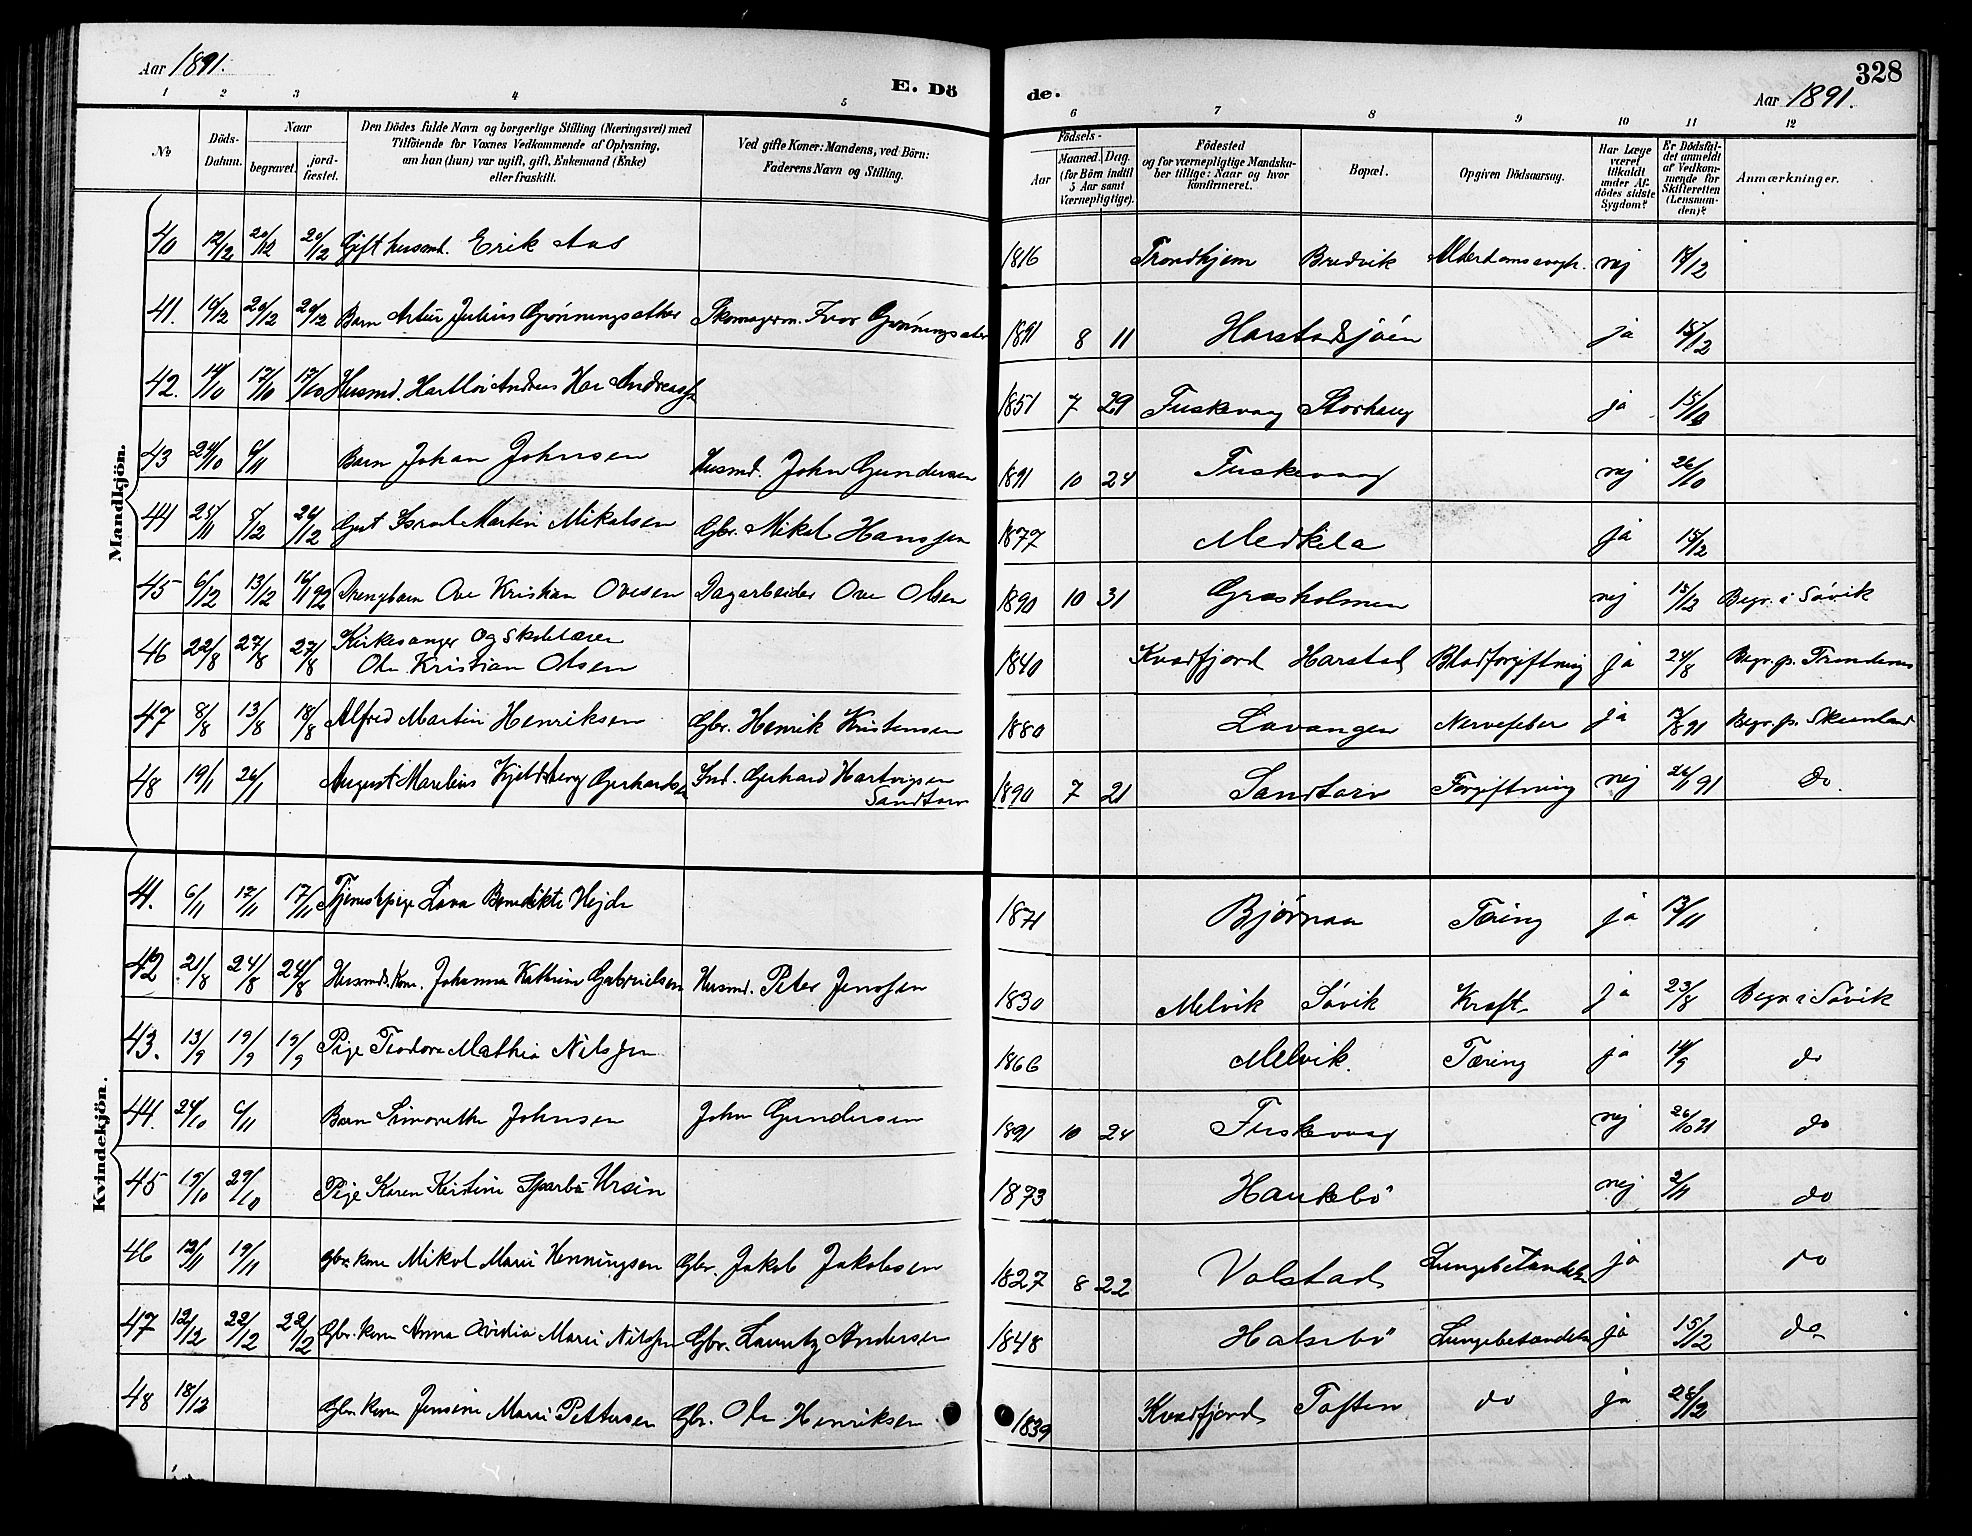 328
Aar 1891.
E. Dö
de.
Aar 1891.
1 2 3 4 5 6 7 8 9 10 11 12
No
Döds-
Datum.
Naar
begravet.
jord-
fæstet.
Den Dödes fulde Navn og borgerlige Stilling (Næringsvei) med
Tilföiende for Voxnes Vedkommende af Oplysning,
om han (hun) var ugift, gift, Enkemand (Enke)
eller fraskilt.
Ved gifte Koner: Mandens, ved Börn:
Faderens Navn og Stilling.
Födsels-
Aar
Maaned. Dag.
(for Börn indtil
5 Aar samt
Værnepligtige).
Födested
og for værnepligtige Mandska-
ber tillige: Naar og hvor
konfirmeret.
Bopæl.
Opgiven Dödsaarsag.
Har Læge
været
tilkaldt
under Af-
dödes sidste
Sygdom?
Er Dödsfal-
det anmeldt
af Vedkom-
mende for
Skifteretten
(Lensman-
den)?
Anmærkninger.
Mandkjön.
40 12/12 20/12 20/12 Gift husmd. Erik Aas 1816 Trondhjem Bredvik nej 14/12
41. 14/12 20/12 20/12 Barn Artur Julius Grønningsæther Skomagerm. Ivar Grønningsæter 1891 8 11 Harstadsjøen ja 15/12
42. 14/10 17/10 17/10 Husmd. Andreas 1851 7 29 Fuskevaag Storhaug ja 15/10
43 24/10 6/11 Barn Johan Johnsen Husmd. John Gundersen 1891 10 24 Fuskevaag nej 26/10
44 25/11 5/12 Gut Israel Martin Mikalsen Gbr. Mikal Hanssen 1877 Medkila ja 15/12
45 6/12 13/12 16/1 92 Drengbarn Ove Kristian Ovesen Dagarbeider Ove Olsen 1890 10 31 Grasholmen nej 15/12 Begr. i Sövik
46 22/8 27/8 27/8 Kirkesanger og Skolelærer
Ole Kristian Olsen 1840 Kvædfjord Harstad Blodforgiftning ja 24/8 Begr. p. Trondenes
47 8/8 13/8 18/8 Alfred Martin Henriksen Gbr. Henrik Kristensen 1880 Lavangen Nervefeber ja Begr. p.
48 19/1 26/1 August Marelius Kjeldsberg Gerhardsen Ind. Gerhard Hartvigsen
Sandtorv 1890 7 21 Sandtorv Forgiftning nej 26/1 91 Do.
Kvindekjön.
41. 6/11 17/11 17/11 Tjenestpige Lava Benedikte Hejde 1871 Bjørnaa Tæring ja 13/11
42 21/8 24/8 24/8 Husmds. Kone. Johanna Kathrine Gabrielsen Husmd. Peter Jenssen 1830 Melvik Sövik Kræft ja 23/8 Begr. i Sövik
43. 13/9 19/9 19/9 Pige Teodora Mathia Nilssen 1866 Melvik. Tæring ja 14/9 do
44. 24/10 6/11 Barn Johnsen John Gundersen 1891 10 24 Fuskevaag nej 26/10 do
45 19/10 29/10 Pige Karen Kirstine Sparbo Ursin 1873 nej 2/11 do
46 12/11 19/11 Gbr. kone Mikol Marie Henningsen Gbr. Jakob Jakobsen 1827 8 22 Volstad Lungebetændelse ja do
47 12/12 22/12 22/12 Gbr. kone Anna Ovidia Marie Nilssen Gbr. Lauritz Andersen 1848 Halsebö Lungebetændelse ja 15/12 do
48 18/12 Gbr. kone Jensine Marie Pettersen Gbr. Ole Henriksen 1839 Kvædfjord Toften do ja 28/12